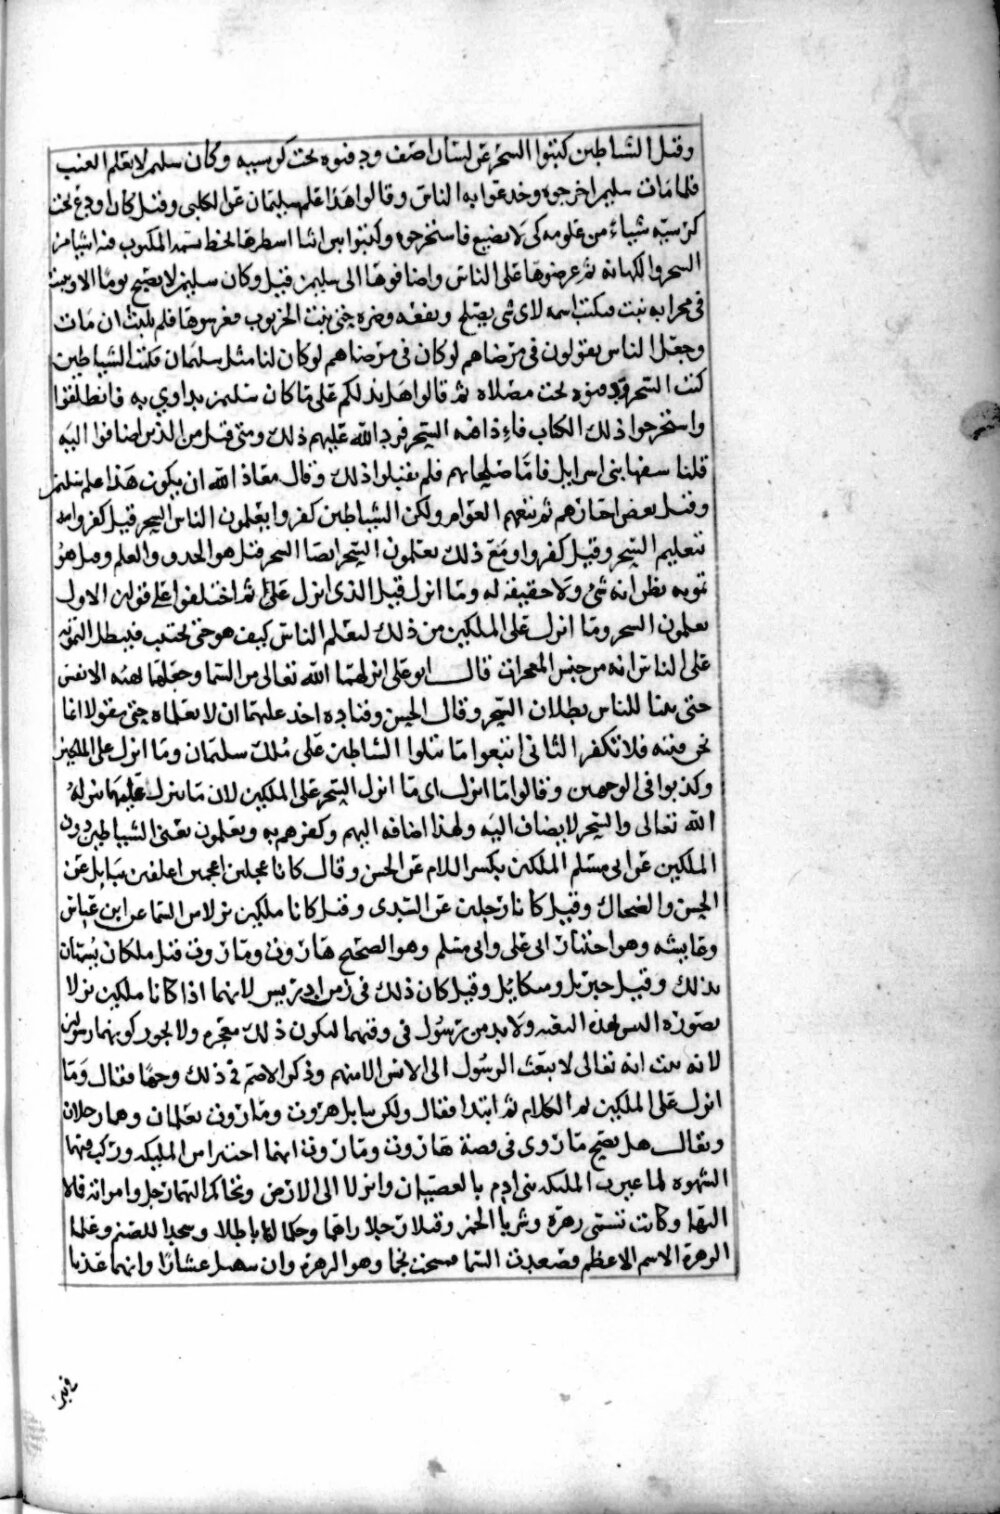 وقيل الشياطين كتبوا السحر عن لسان اصف ودفنوه تحت كرسيه وكان سليمن لا يعلم الغيب
فلما مات سليمن اخرجوه وخدعوا به الناس وقالوا هذا علم سليمان عن الكلبي وقيل كان اودع تحت
كرسيه شياء من علومه كى لا يضيع فاستخرجوه وكتبوا بين اثنا اسطرها بخط يشبه المكتوب فيه اشيا من
السحر والكهانه ثم عرضوها على الناس واضافوها الى سليمن قيل وكان سليمن لا يصبح يوما الا وينبت
فى محرابه نبت فيكتب اسمه لاى شى يصلح ونفعه وضره حتى نبت الخرنوب فغرسوها فلم يلبث ان مات
وجعل الناس يقولون فى مرضاهم لو كان فى مرضاهم لو كان لنا مثل سليمان فكتب الشياطين
كتب السحر ودفنوه تحت مصلاه ثم قالوا هل ندلكم على ما كان سليمن يداوي به فانطلقوا
واستخرجوا ذلك الكتاب فاذا فيه السحر فرد الله عليهم ذلك ومتى قيل من الذين اضافوا اليه
قلنا سفها بنى اسرايل فاما صلحاؤهم فلم يقبلوا ذلك وقال معاذ الله ان يكون هذا علم سليمن
وقيل بعض احبارهم ثم تبعهم العوام ولكن الشياطين كفروا يعلمون الناس السحر قيل كفروا به
بتعليم السحر وقيل كفروا ومع ذلك يعلمون السحر ايضا السحر قيل هو الحذق والعلم وقيل هو
تمويه يظن انه شى ولا حقيقة له وما انزل قيل الذى انزل على ثم اختلفوا على قولين الاول
يعلمون السحر وما انزل على الملكين من ذلك ليعلم الناس كيف هو حتى يجتنب فيبطل التمويه
على الناس انه من جنس المعجزات قال ابو على انزلهما الله تعالى من السما وجعلهما بهيه الانس
حتى بينا للناس بطلان السحر وقال الحسن وقتاده اخذ عليهما ان لا يعلماه حتى يقولا انما
نحن فتنه فلا تكفر الثانى اتبعوا ما تتلوا الشياطين على ملك سليمان وما انزل على الملكين
وكذبوا فى الوجهين وقالوا ما انزل اى ما انزل السحر على الملكين لان ما ينزل عليهما ينزله
الله تعالى والسحر لا يضاف اليه ولهذا اضافه اليهم وكفرهم به ويعلمون يعنى الشياطين دون
الملكين عن ابى مسلم الملكين بكسر اللام عن الحسن وقال كانا علجين اعجمين اعلفين ببابل عن
الحسن والضحاك وقيل كانا رجلين عن السدى وقيل كانا ملكين نزلا من السما عن ابن عباس
وعايشه وهو اختيار ابى على وابى مسلم وهو الصحيح هاروت وماروت قيل ملكان يسميان
بذلك وقيل جبريل وميكائيل وقيل كان ذلك فى زمن ادريس لانهما اذا كانا ملكين نزلا
بصورة الانس لهذه البقيه ولا بد من رسول فى وقتهما ليكون ذلك معجزه ولا يجوز كونهما رسولين
لانه ثبت انه تعالى لا يبعث الرسول الى الانس الا منهم وذكر الاصم فى ذلك وجها فقال وما
انزل على الملكين تم الكلام ثم ابتدا فقال ولكن ببابل هروت وماروت يعلمان وهما رجلان
ويقال هل يصح ما روى فى قصة هاروت وماروت انهما اختيرا من المليكه وركب فيهما
الشهوه لما عيرت المليكه بنى ادم بالعصيان وانزلا الى الارض وتحاكم اليهما رجل وامراته فمالا
اليها وكانت تسمى زهرة وشربا الخمر وقتلا رجلا راهما وحكما لها باطلا وسجدا للصنم وعلما
الزهرة الاسم الاعظم فصعدت السما فمسخت نجما وهو الزهرة وان سهيل عشارا وانهما عذبا